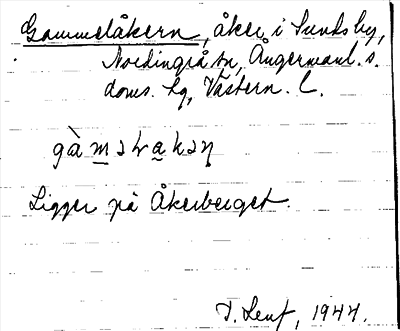 Gammelåkern, åker i Sundsby,
Nordingrå sn, Ångermanl. s.
doms. lg, Västern. l.
gàmələakəɳ
Ligger på Åkerberget.
1944.